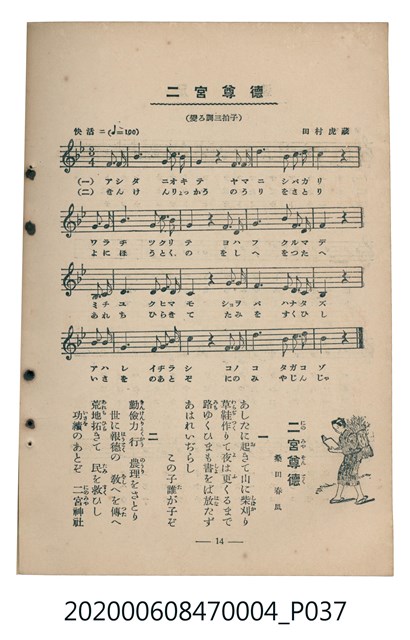 德尊宮二
(變ろ調三拍子)
快活ニ(♩=100)
田村虎藏
(一) アシタ ニオキテ ヤマニ シバカリ
(二) きんけ んりょっかう のうり をさとり
ワラヂ ツクリテ ヨハフ クルマデ
よにほ うとく、の をしへ をつたへ
ミチユ クヒマモ ショヲバ ハナタズ
あれち ひらきて たみを すくひし
アハレ イヂラシ コノコ タガコゾ
いさを のあとぞ にのみ やじんじゃ
二宮尊德
桑田春風
一
あしたに起きて山に柴刈り
草鞋作りて夜は更くるまで
路ゆくひまも書をば放たず
あはれいぢらし
この子誰が子ぞ
二
勤儉力行 農理をさとり
世に報德の 敎へを傳へ
荒地拓きて 民を救ひし
功績のあとぞ 二宮神社
— 14 —
202000608470004_P037